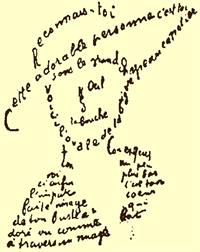 Reconnais-toi
Cette adorable personne c'est toi
sous le grand chapeau canotier
Œil
la bouche
Voici l'ovale de ta figure
Ton
Cou exquis
voi
ci enfin
l'impar
faite image
de ton buste a
doré vu comme
à travers un nuage
un peu
plus bas
c'est ton
coeur
qui
bat